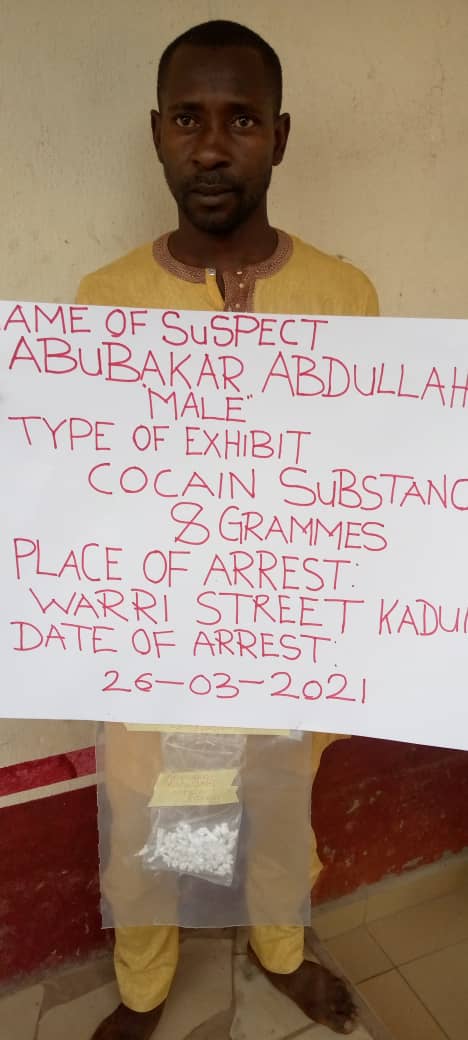 AME OF SUSPECT
ABUBAKAR ABDULLAH
"MALE"
TYPE OF EXHIBIT
COCAIN SUBSTANC
8 GRAMMES
PLACE OF ARREST:
WARRI STREET KADU
DATE OF ARREST:
26-03-2021